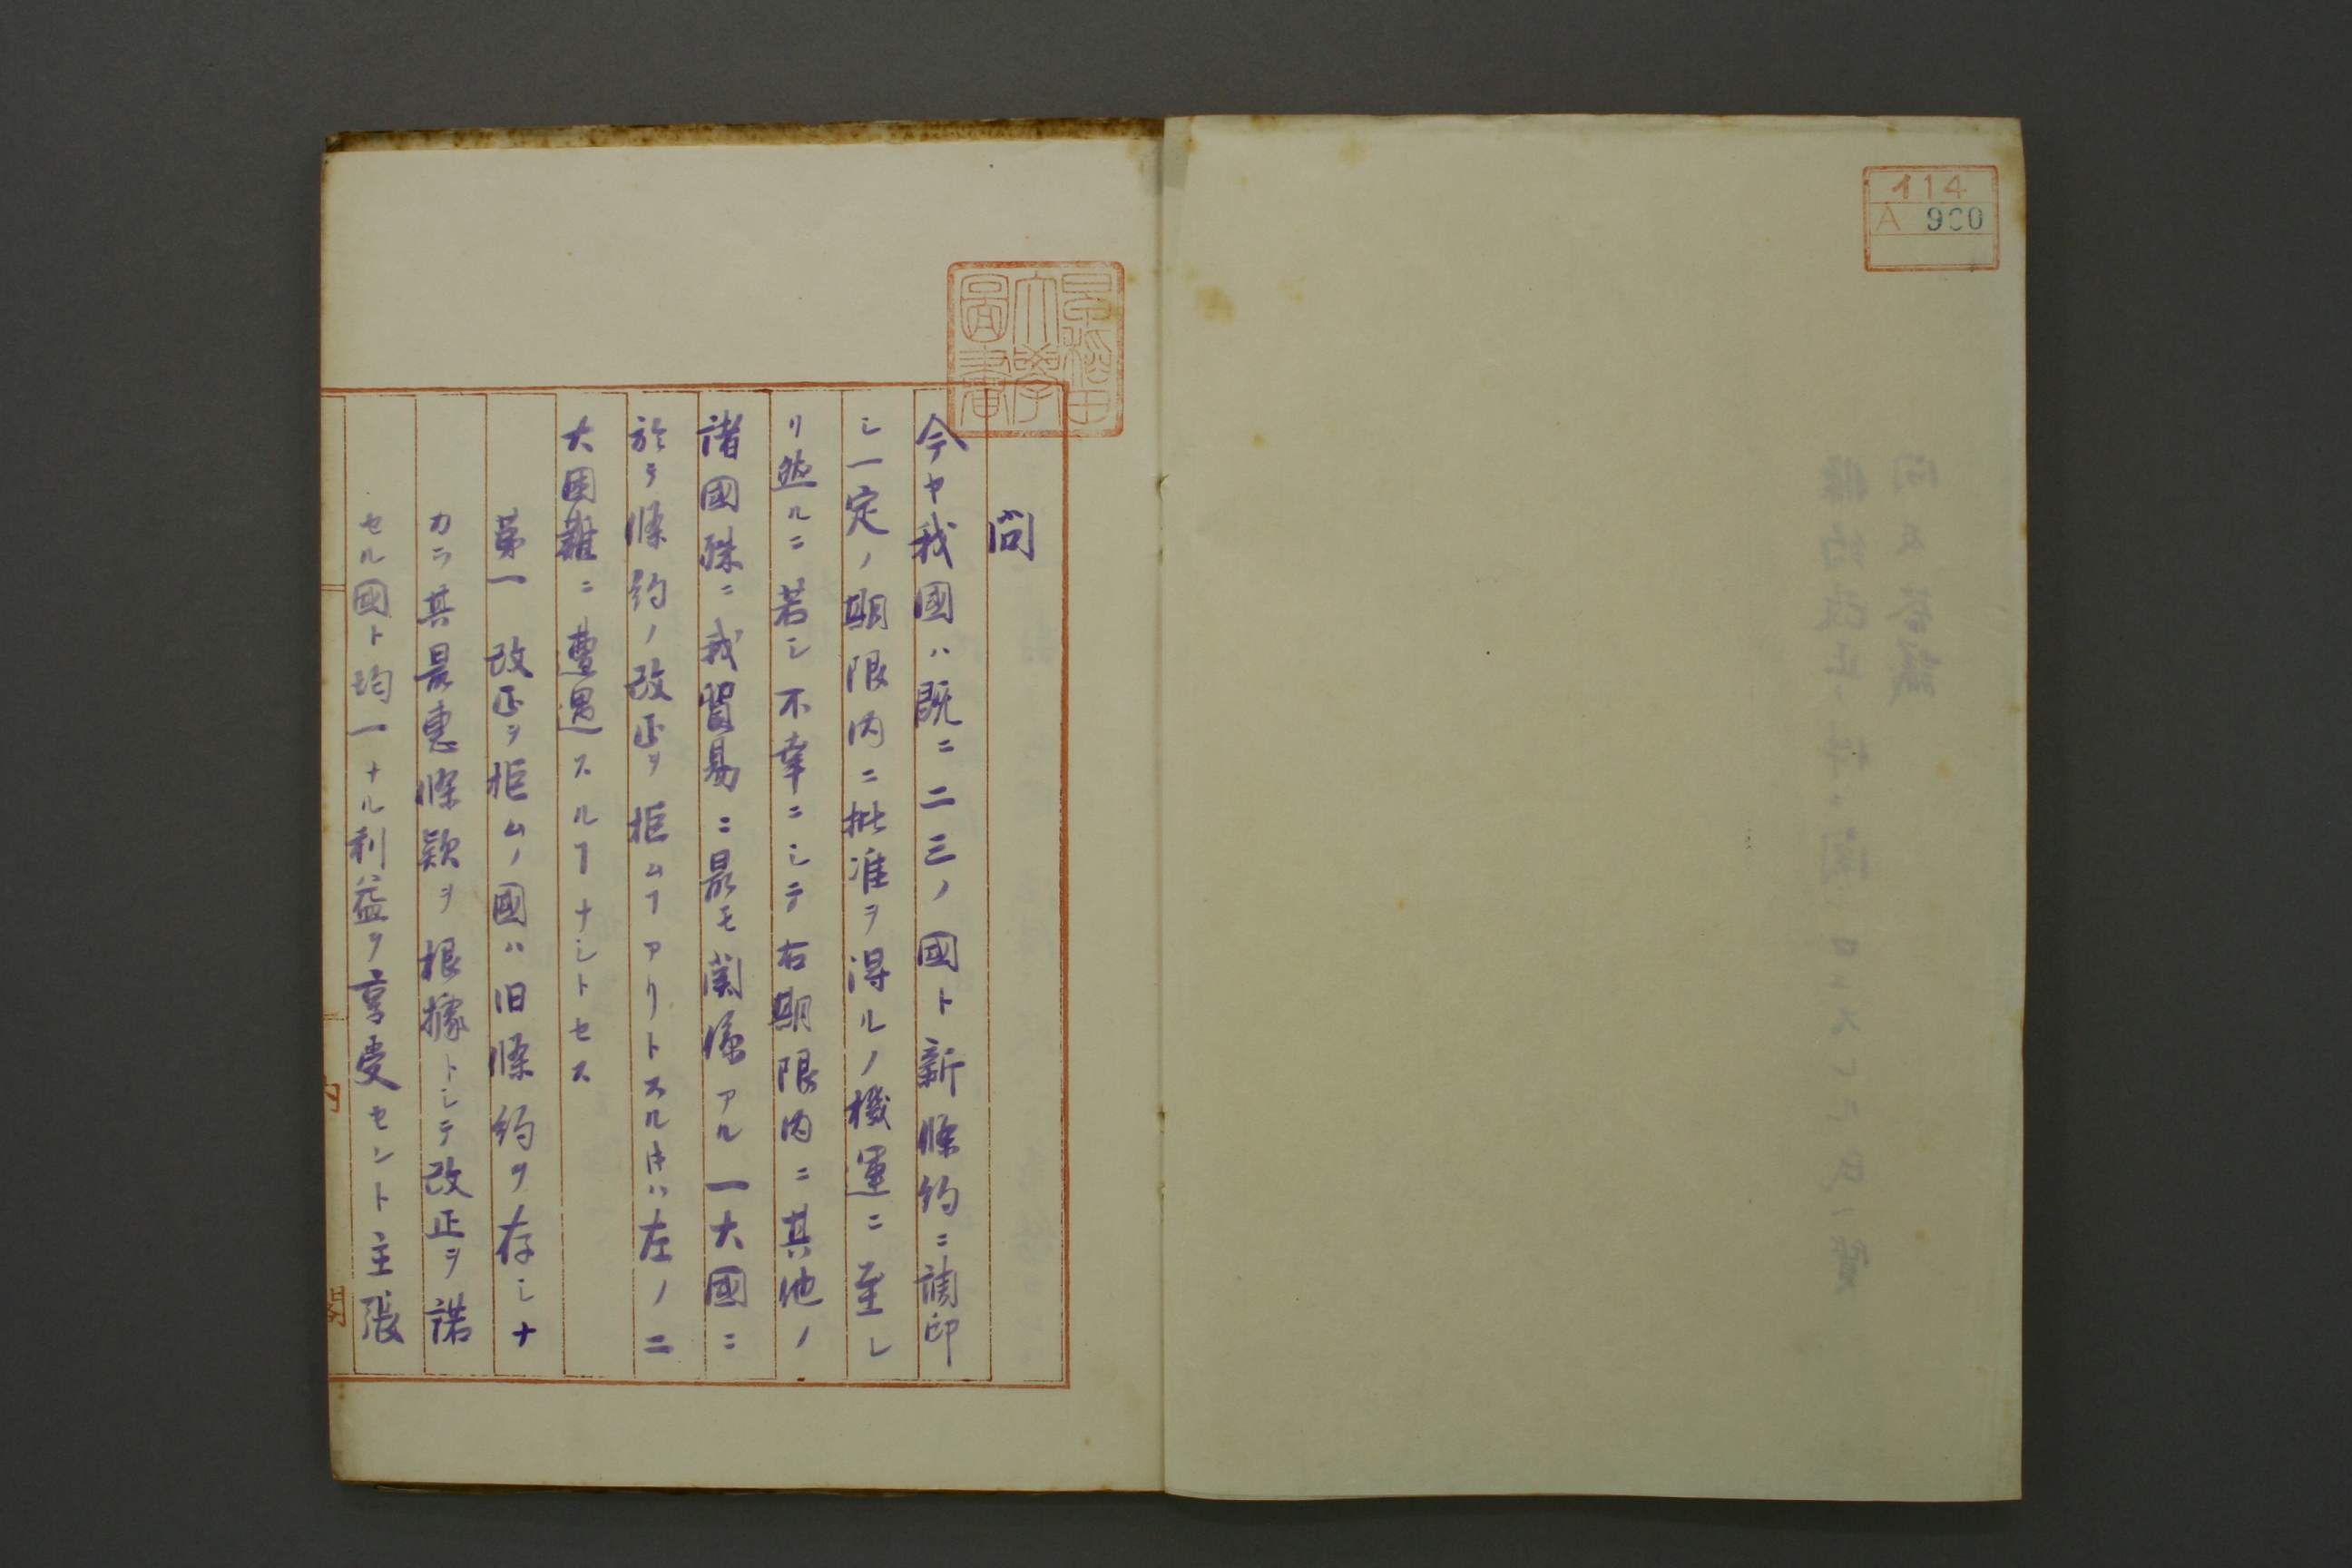 イ14
A 900
問
今ヤ我國ハ既ニ二三ノ國ト新條約ニ調印
シ一定ノ期限内ニ批准ヲ得ルノ機運ニ至レ
リ然ルニ若シ不幸ニシテ右期限内ニ其他ノ
諸國殊ニ我貿易ニ最モ関係アル一大國ニ
於テ條約ノ改正ヲ拒ムヿアリトスル𪜈ハ左ノ二
大困難ニ遭遇スルヿナシトセス
第一 改正ヲ拒ムノ國ハ旧條約ヲ存シナ
カラ其最惠條款ヲ根據トシテ改正ヲ諾
セル國ト均一ナル利益ヲ享受セント主張
早稲田
大學
圖書
内
閣